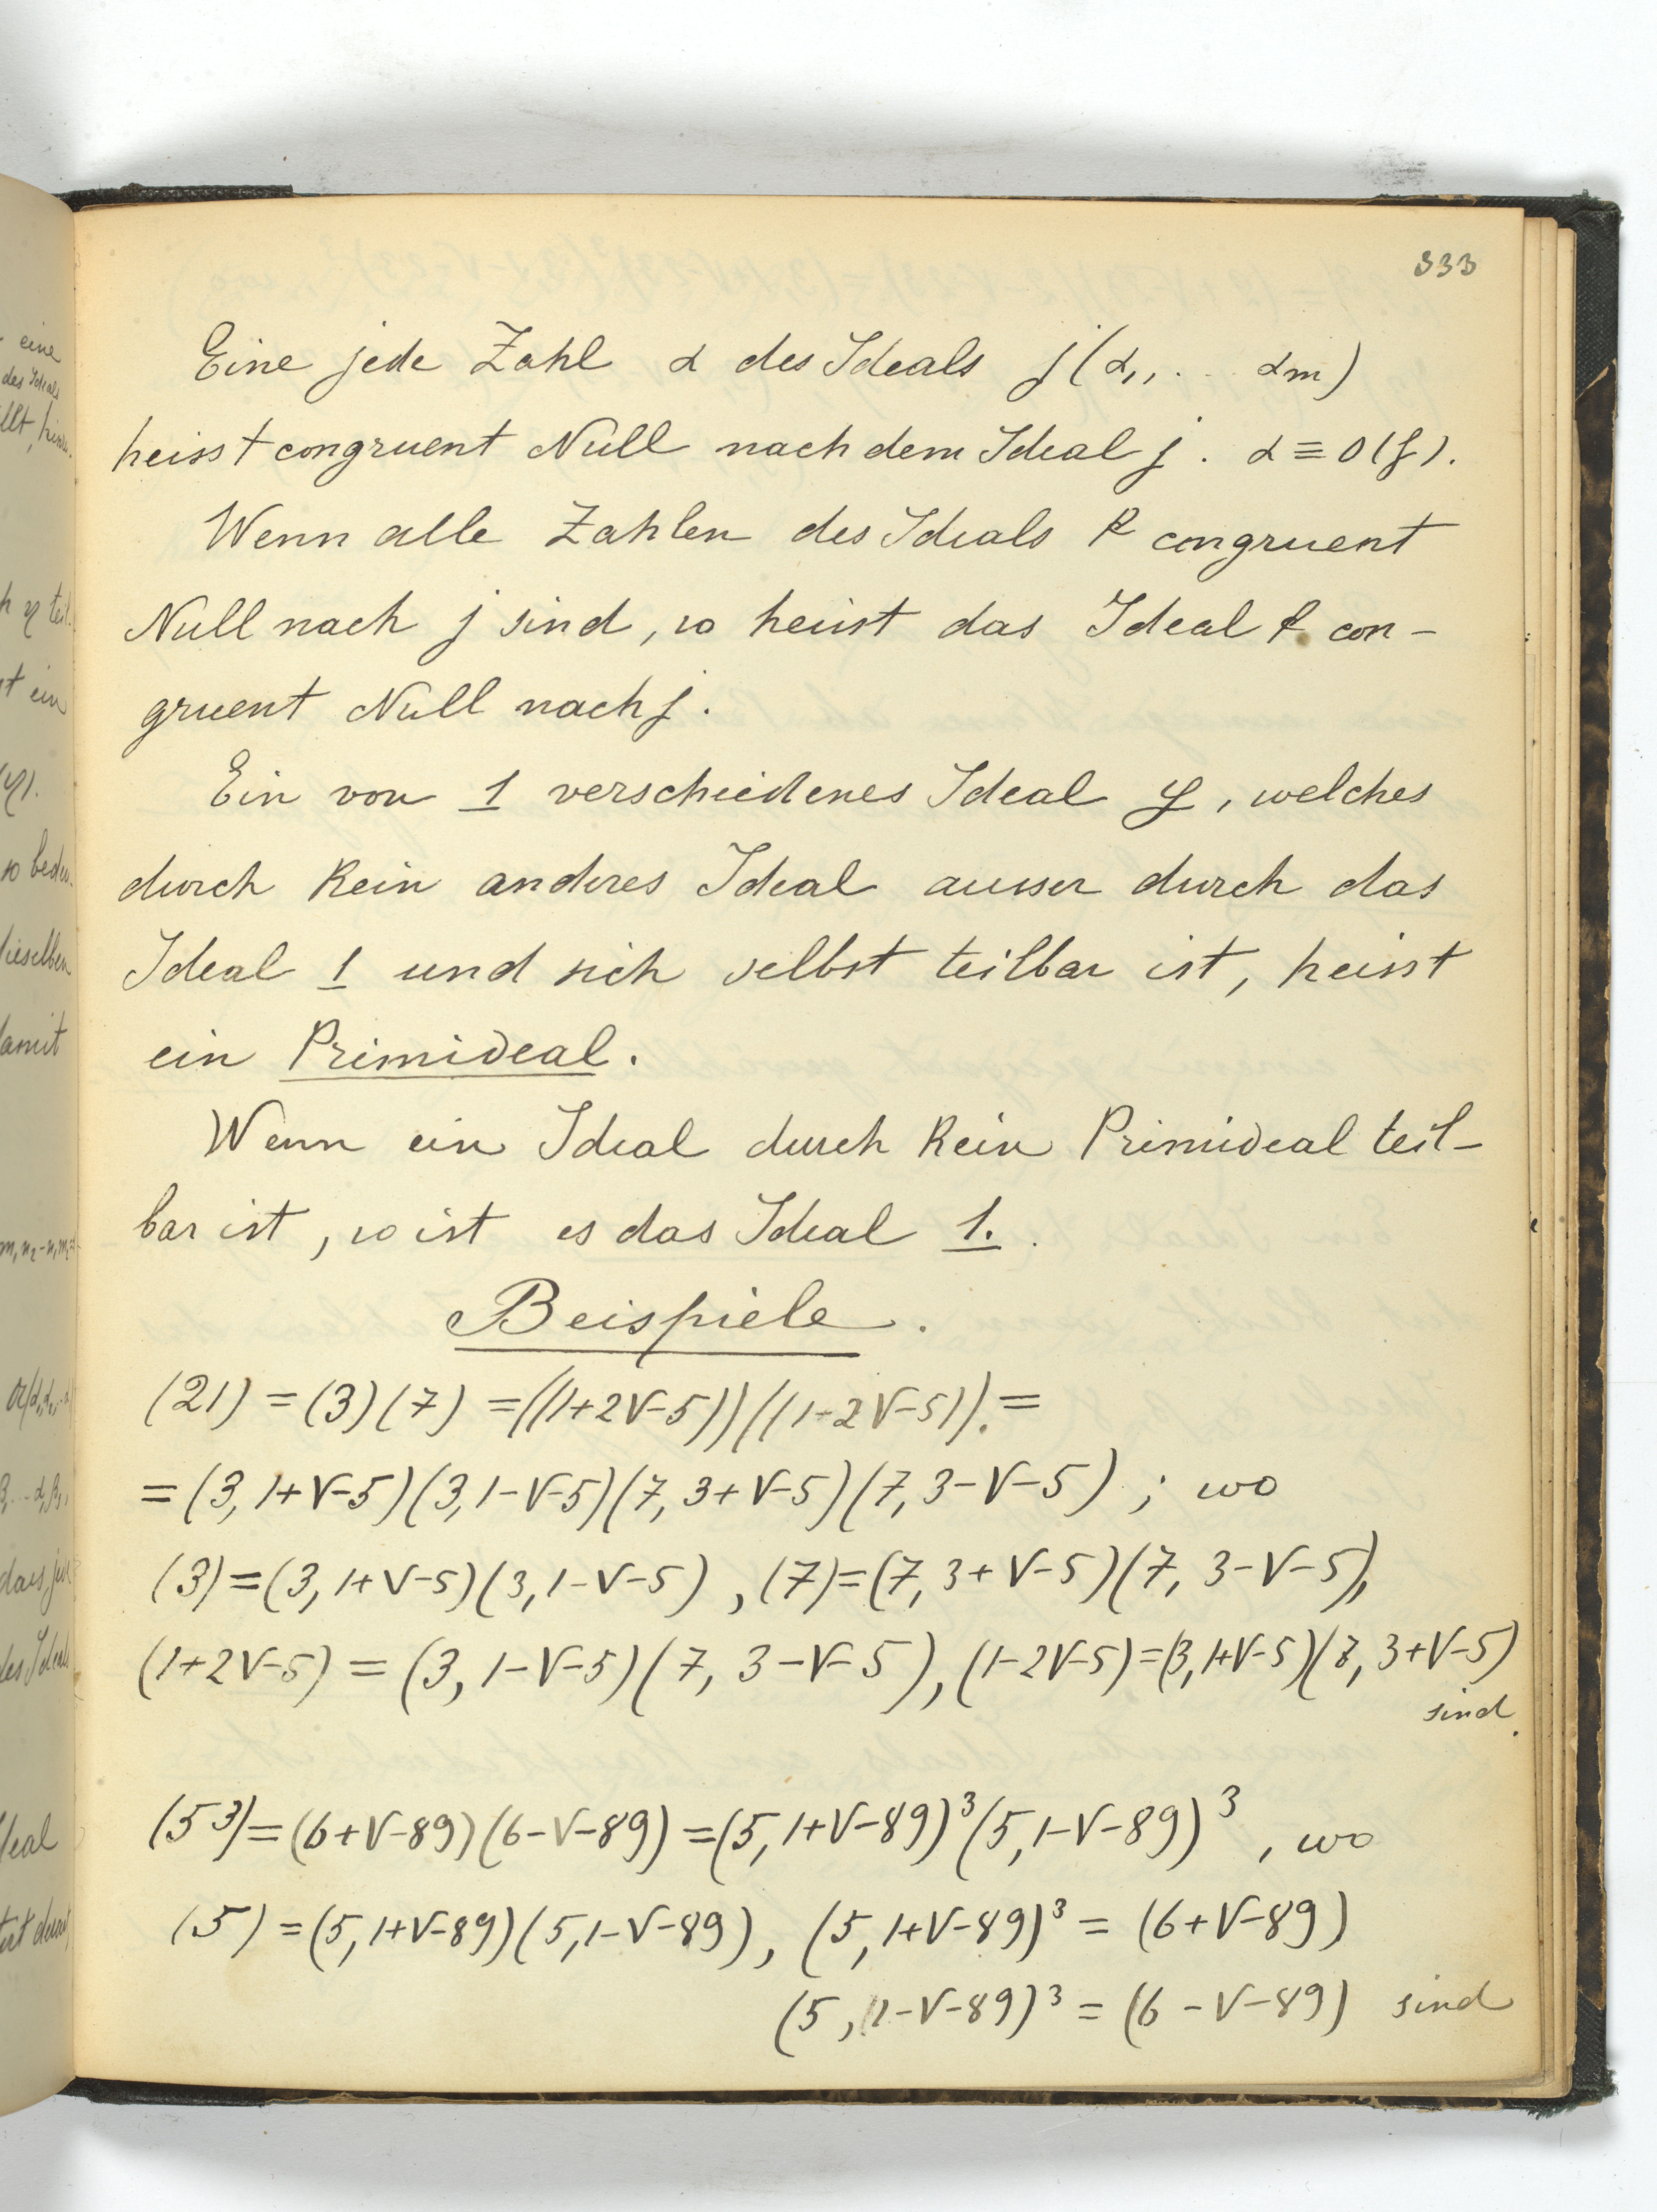 333
Eine jede Zahl α des Ideals j(α₁, . . αm)
heisst congruent Null nach dem Ideal j. α ≡ 0 (j).
Wenn alle Zahlen des Ideals k congruent
Null nach j sind, so heisst das Ideal k con-
gruent Null nach j.
Ein von 1 verschiedenes Ideal y, welches
durch kein anderes Ideal ausser durch das
Ideal 1 und sich selbst teilbar ist, heisst
ein Primideal.
Wenn ein Ideal durch kein Primideal teil-
bar ist, so ist es das Ideal 1.
Beispiele.
(21) = (3)(7) = ((1+2√-5))((1-2√-5)). =
= (3, 1+√-5)(3, 1-√-5)(7, 3+√-5)(7, 3-√-5) ; wo
(3)=(3, 1+√-5)(3, 1-√-5) , (7)=(7, 3+√-5)(7, 3-√-5),
(1+2√-5) = (3, 1-√-5)(7, 3-√-5), (1-2√-5)=(3, 1+√-5)(7, 3+√-5)
sind.
(5³)=(6+√-89)(6-√-89)=(5, 1+√-89)³(5, 1-√-89)³ , wo
(5) = (5, 1+√-89)(5, 1-√-89), (5, 1+√-89)³ = (6+√-89)
(5, 1-√-89)³ = (6-√-89) sind